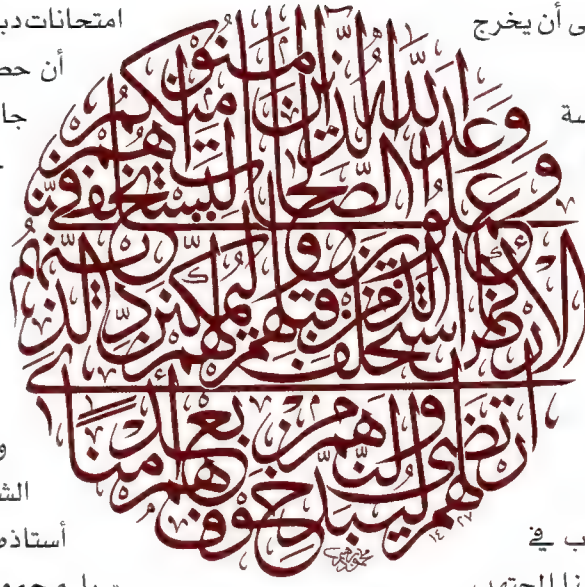 أن يخرج
امتحانات
أن
وعد الله الذين آمنوا منكم
وعملوا الصالحات ليستخلفنهم في
الأرض كما استخلف الذين من قبلهم وليمكنن لهم دينهم الذي
ارتضى لهم وليبدلنهم من بعد خوفهم أمنا
١٤٢٧
في